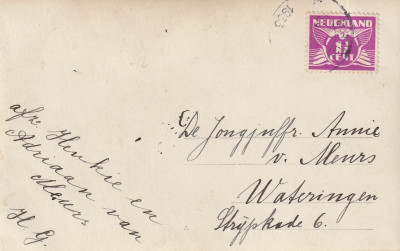 NEDERLAND
1½
CENT
afz. Henkie en
Adriaan van
Meurs
H. G.
De Jongjuffr. Annie
v. Meurs
Wateringen
Strijpkade 6.